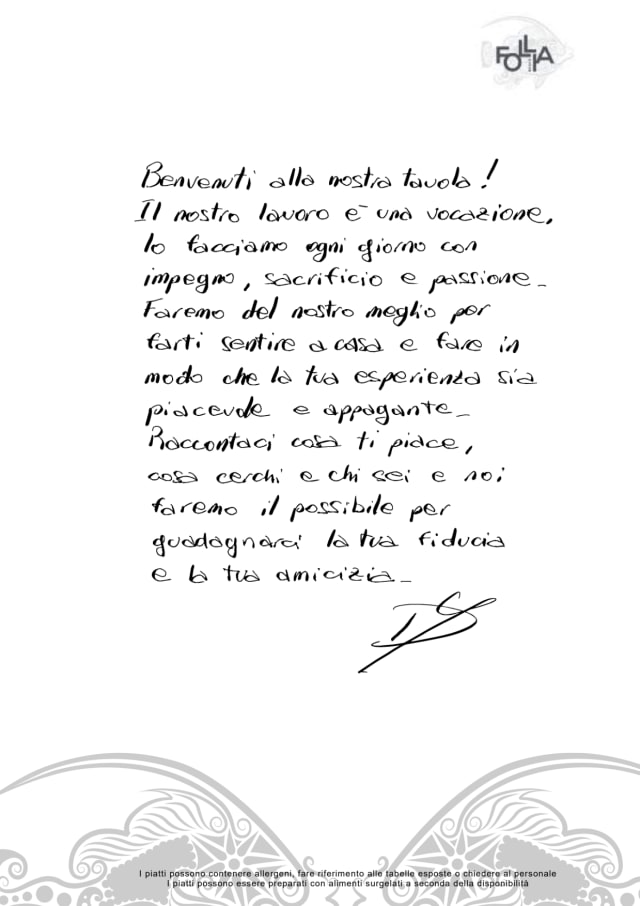 FOLLIA
Benvenuti alla nostra tavola!
Il nostro lavoro è una vocazione,
lo facciamo ogni giorno con
impegno, sacrificio e passione_
Faremo del nostro meglio per
farti sentire a casa e fare in
modo che la tua esperienza sia
piacevole e appagante_
Raccontaci cosa ti piace,
cosa cerchi e chi sei e noi
faremo il possibile per
guadagnarci la tua fiducia
e la tua amicizia_
I piatti possono contenere allergeni, fare riferimento alle tabelle esposte o chiedere al personale
I piatti possono essere preparati con alimenti surgelati a seconda della disponibilità